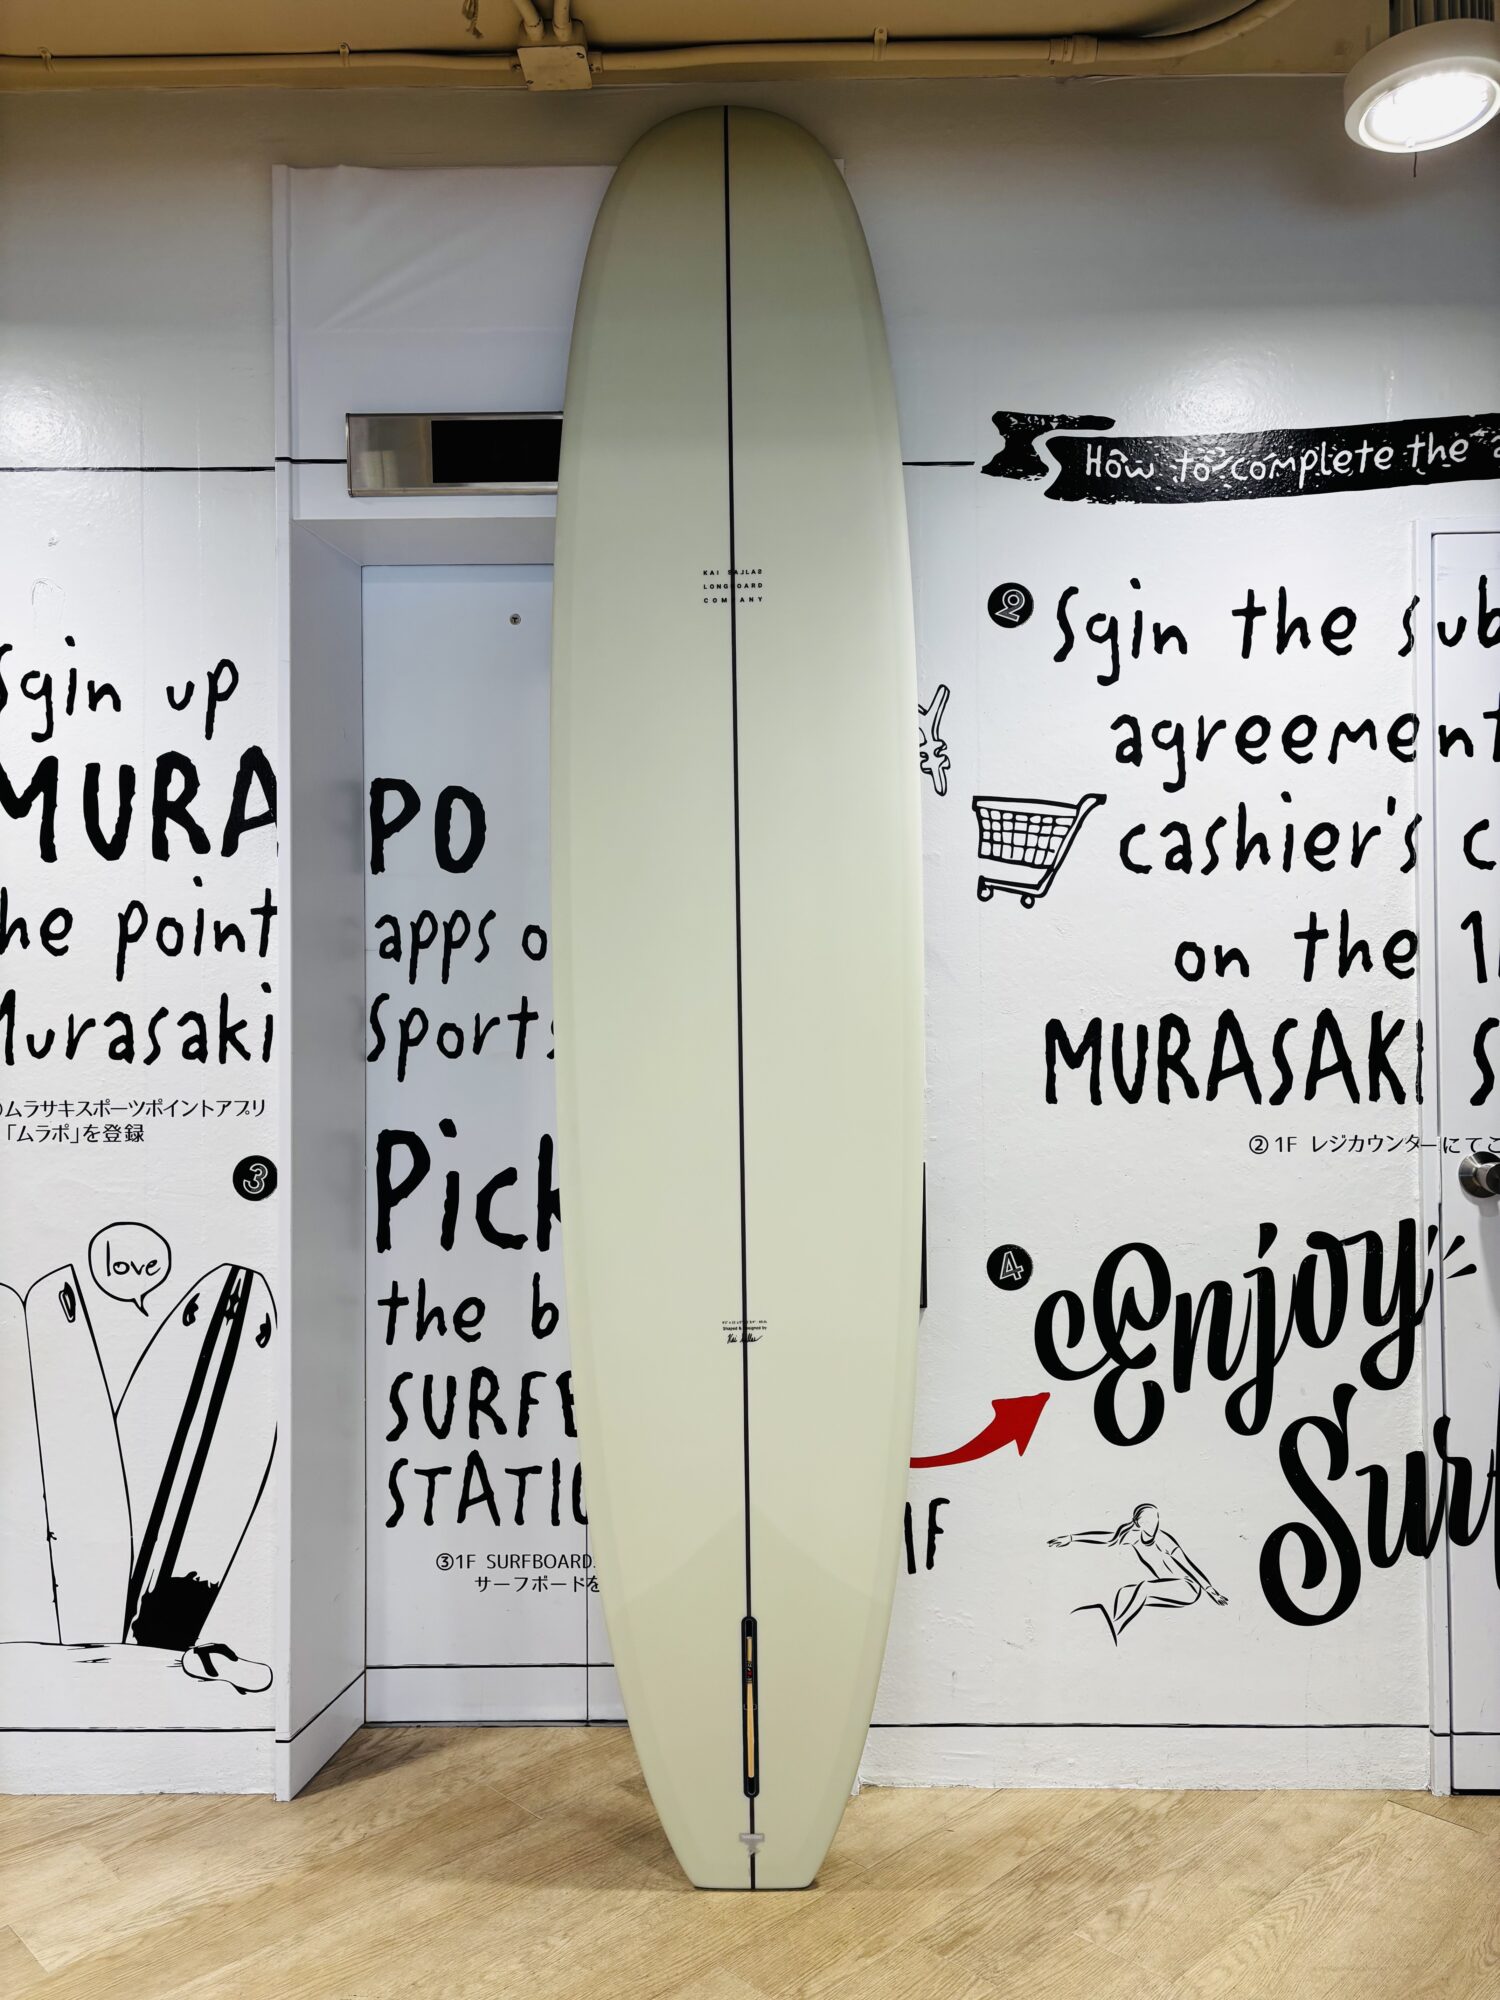 How to complete the
Sgin up
MURA
PO
he point
apps o
Murasaki
Sports
ムラサキスポーツポイントアプリ
「ムラポ」を登録
3
love
Pick
the b
SURFB
STATIO
③1F SURFBOARD
サーフボードを
KAI SALLAS
LONGBOARD
COMPANY
Shaped & Designed by
Kai Sallas
2
Sgin the sub
agreement
cashier's c
on the 1
MURASAKI S
② 1F レジカウンターにてこ
4
Enjoy
Surf
1F